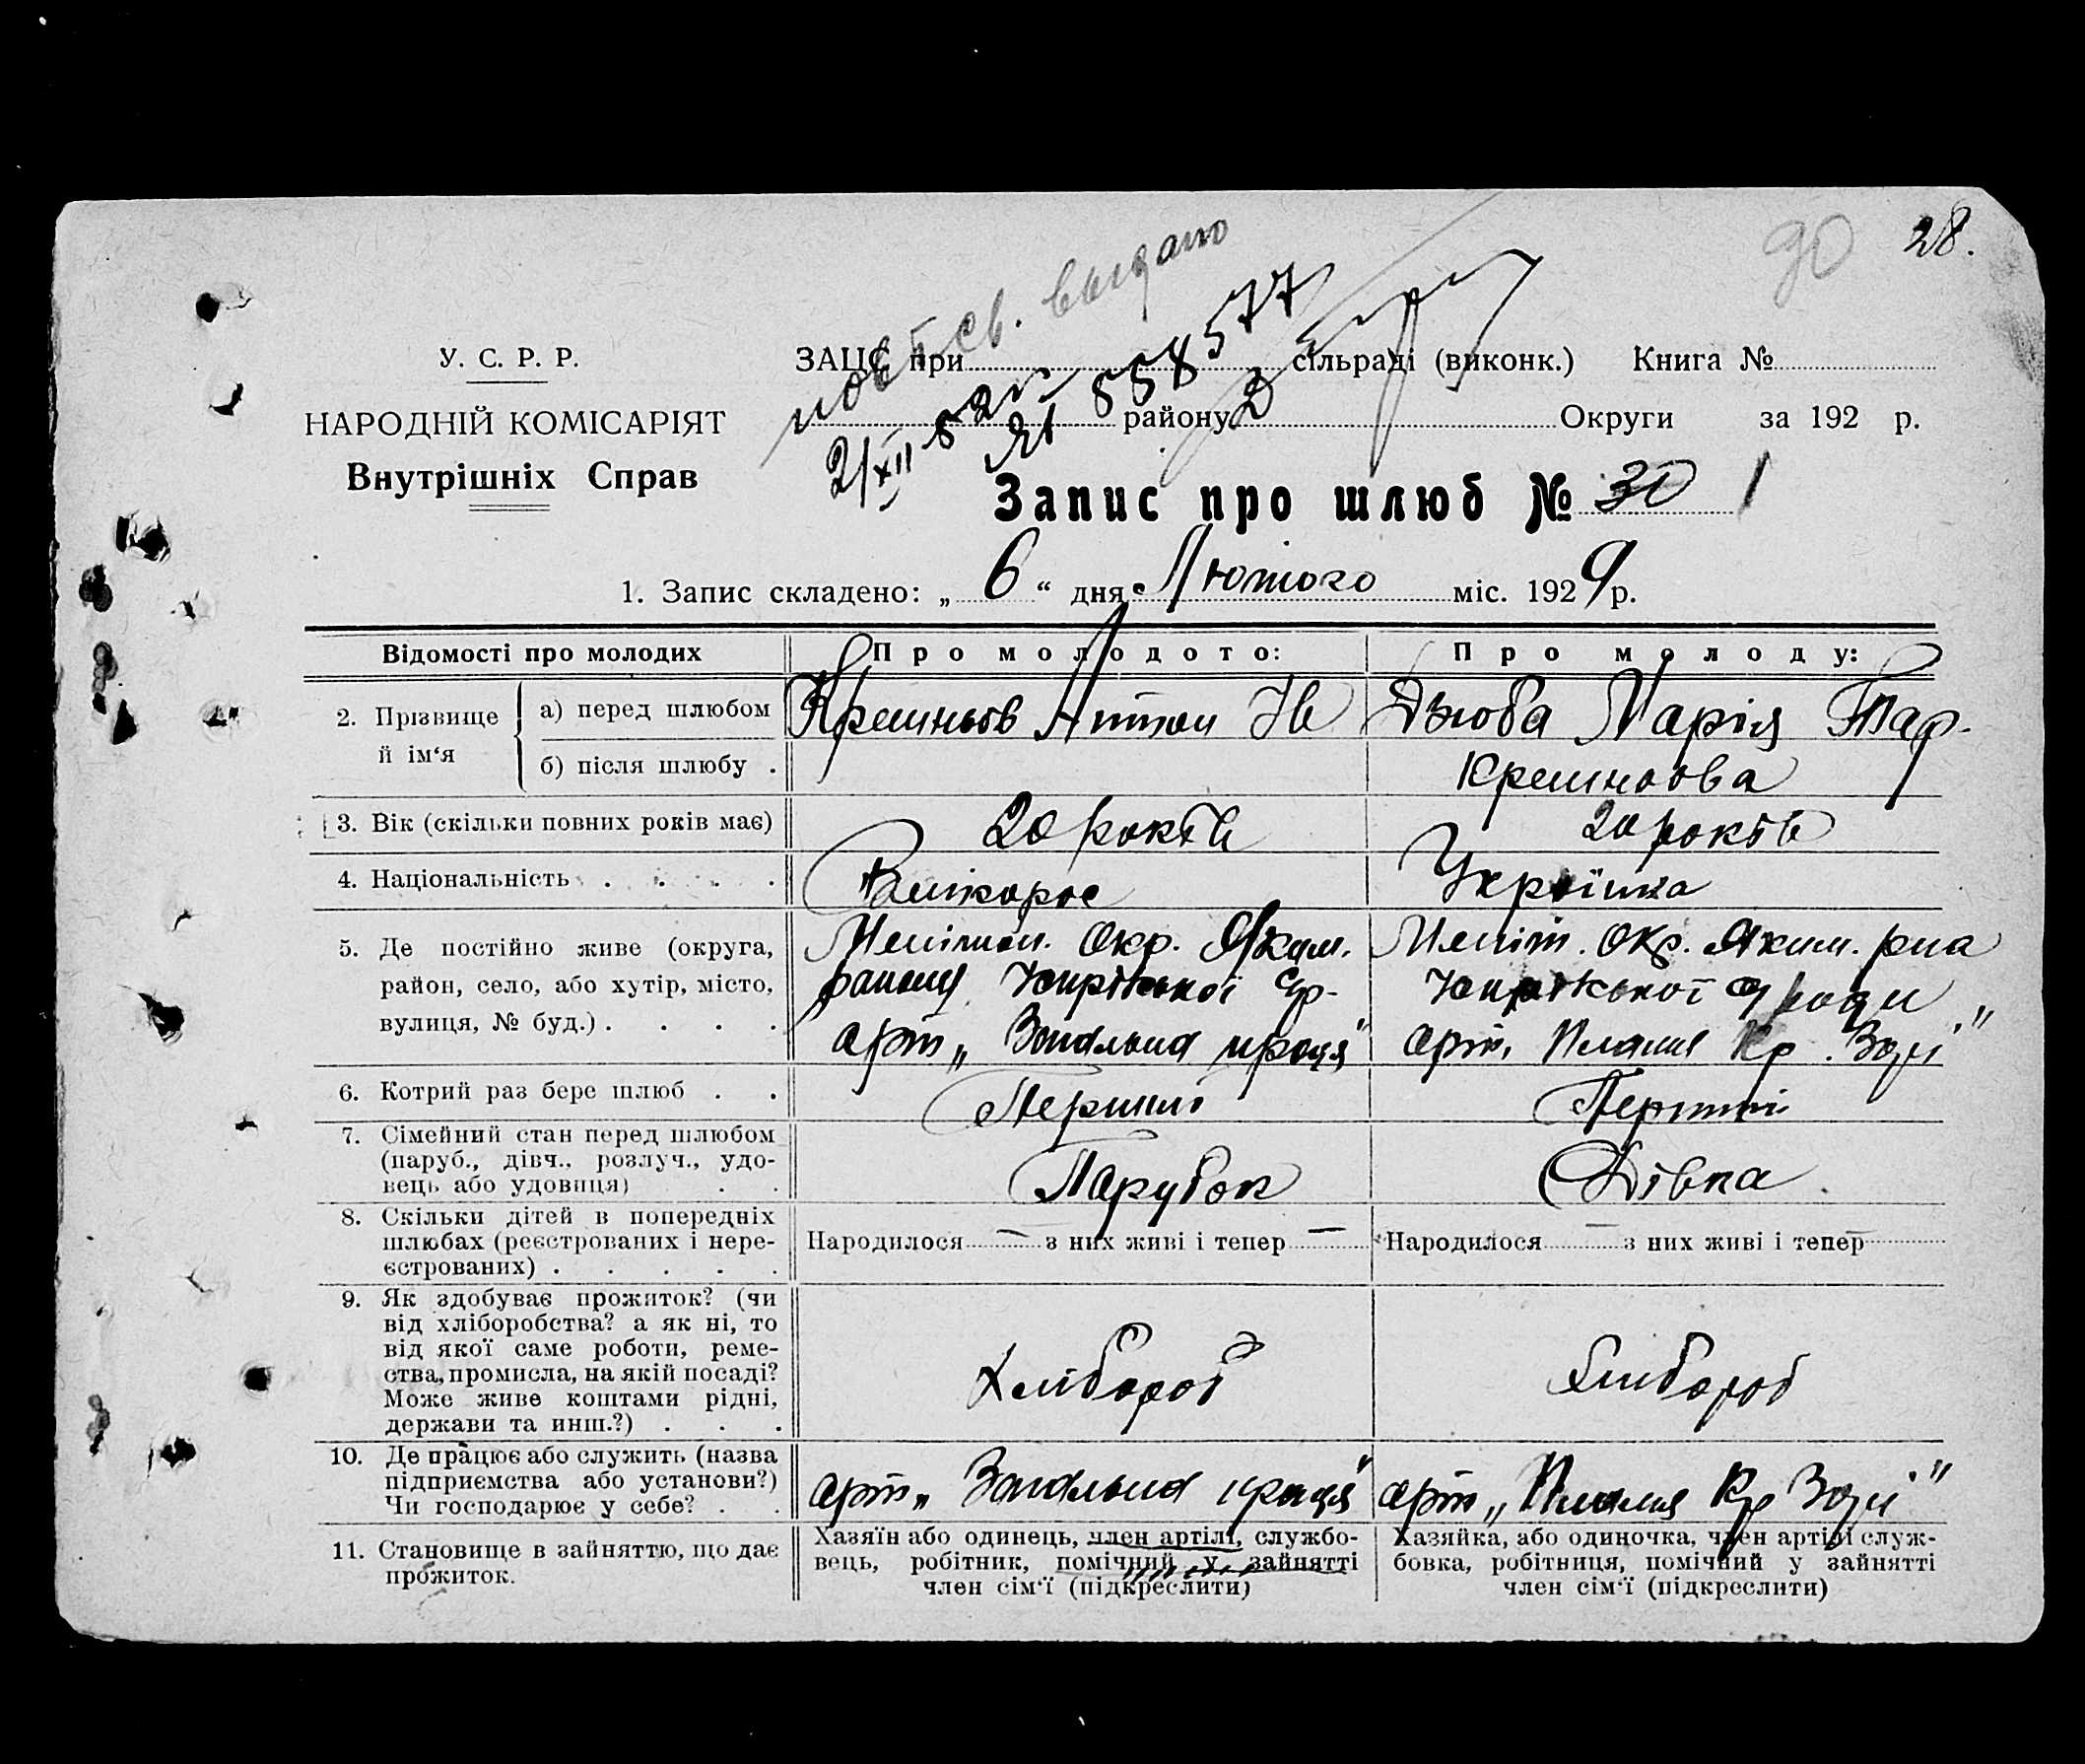 90 28.
повт св. выдано
2/XII 52 г. 558577
У. С. Р. Р.
НАРОДНІЙ КОМІСАРІЯТ
Внутрішніх Справ
ЗАЦС при сільраді (виконк.) Книга №
району Округи за 192 р.
Запис про шлюб № 30
1. Запис складено: „ 6 “ дня Лютого міс. 1929 р.
Відомості про молодих Про молодого: Про молоду:
2. Прізвище й ім‘я
а) перед шлюбом Антон Ів Дзюба Марія Тар.
б) після шлюбу .
3. Вік (скільки повних років має) 20 років 20 років
4. Національність . . . . Велікорос Українка
5. Де постійно живе (округа, Меліт. Окр. Яким. Меліт. Окр. Яким. рна
район, село, або хутір, місто, району
вулиця, № буд.) . . . . арт „ Загальна праця" арт. Кр. Зорі"
6. Котрий раз бере шлюб . . Перший Перший
7. Сімейний стан перед шлюбом
(паруб., дівч., розлуч., удо- Парубок Дівка
вець або удовиця) . .
8. Скільки дітей в попередніх
шлюбах (реєстрованих і нере- Народилося — з них живі і тепер — Народилося — з них живі і тепер —
єстрованих) . . . . .
9. Як здобуває прожиток? (чи
від хліборобства? а як ні, то
від якої саме роботи, реме-
ства, промисла, на якій посаді? Хлібороб Хлібороб
Може живе коштами рідні,
держави та инш.?) . . .
10. Де працює або служить (назва
підприємства або установи?) арт „ Загальна праця" арт „ Кр Зорі"
Чи господарює у себе? . .
11. Становище в зайняттю, що дає
прожиток.
Хазяїн або одинець, член артілі, службо-
вець, робітник, помічний у зайнятті
член сім‘ї (підкреслити)
Хазяйка, або одиночка, член артілі служ-
бовка, робітниця, помічний у зайнятті
член сім‘ї (підкреслити)